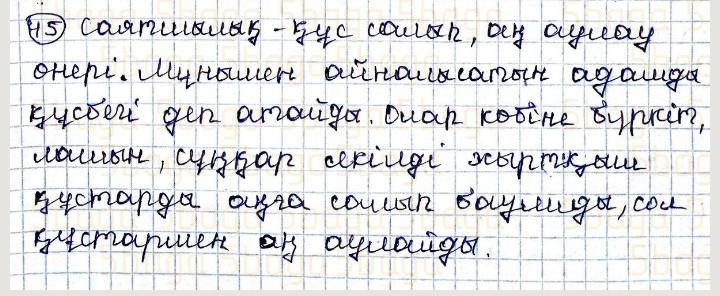 45 Саятшылық - құс салып, аң аулау
өнері. Мұнымен айналысатын адамды
құсбегі деп атайды. Олар көбіне бүркіт,
лашын, сұңқар секілді жыртқыш
құстарды аңға салып баулиды, сол
құстармен аң аулайды.